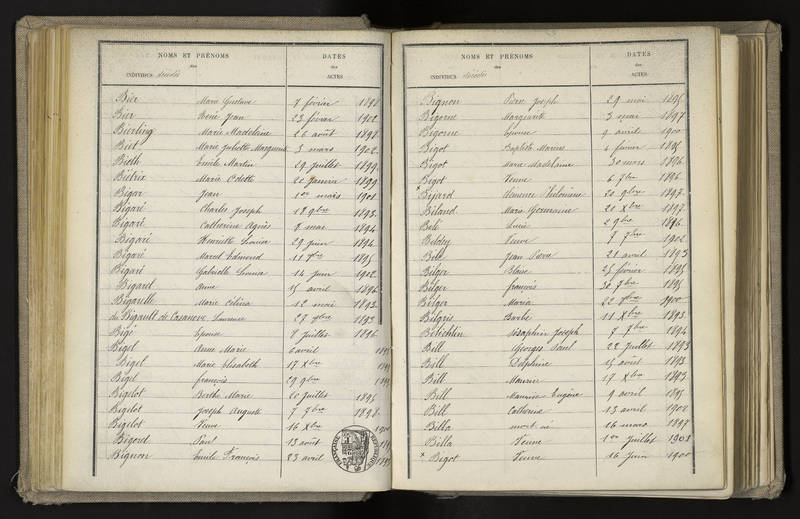 NOMS ET PRÉNOMS
des
INDIVIDUS décédés
DATES
des
ACTES
Bier Marie Gustave 7 février 1898
Bier René Jean 23 février 1902
Bierling Marie Madeleine 26 août 1898
Biet Marie Juliette Marguerite 3 mars 1902
Emile Martin 29 Juillet 1899
Biétrix Marie Odette 20 Janvier 1899
Bigar Jean 1er mars 1901
Bigaré Charles Joseph 18 9bre 1893
Bigaré Catherine Agnès 8 mai 1894
Bigaré Henriette Louise 29 Juin 1894
Bigaré Marcel Edmond 11 7bre 1895
Bigaré Gabrielle Louise 14 Juin 1902
Bigarel Anne 15 avril 1896
Bigarelle Marie Célina 12 mai 1893
du Bigault de Casanove Laurence 27 9bre 1893
Bigé Epouse 8 Juillet 1896
Bigel Anne Marie 6 avril
Bigel Marie Elisabeth 17 Xbre
Bigel François 29 9bre
Bigelot Berthe Marie 20 Juillet 1895
Bigelot Joseph Auguste 7 9bre 1898
Bigelot Veuve 16 Xbre 1900
Bigeord Paul 13 août
Bignon Emile François 23 avril
NOMS ET PRÉNOMS
des
INDIVIDUS décédés
DATES
des
ACTES
Bignon Pierre Joseph 29 mai 1895
Bigorne Marguerite 3 mai 1897
Bigorne Epouse 9 avril 1900
Bigot Baptiste Marius 4 février 1895
Bigot Marie Madeleine 30 mars 1896
Bigot Veuve 6 7bre 1896
x Bijard Clémence Philomène 20 9bre 1897
Biland Marie Germaine 20 Xbre 1897
Bélé Louise 2 9bre 1896
Veuve 7 7bre 1902
Jean Pierre 21 avril 1893
Bilger Blaise 25 février 1895
Bilger François 30 7bre 1895
Bilger Maria 22 7bre 1900
Bilgris Barbe 11 Xbre 1893
Séraphin Joseph 7 7bre 1894
Bill Georges Paul 22 Juillet 1893
Bill Delphine 15 août 1893
Bill Maurice 17 Xbre 1893
Bill Maurice Eugène 9 avril 1895
Bill Catherine 13 avril 1902
Billa mort né 16 mars 1897
Billa Veuve 1er Juillet 1903
x Bigot Veuve 16 Juin 1900